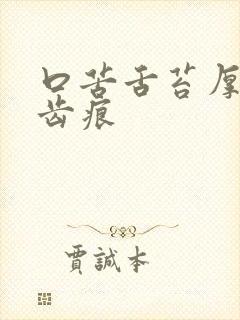 口苦舌苔厚
齿痕
賈誠本